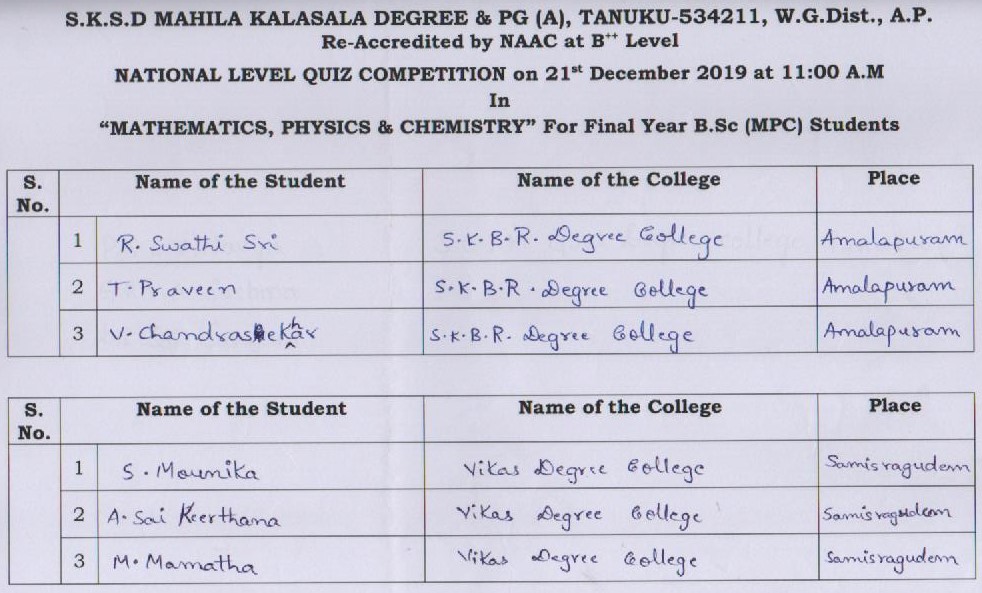 S.K.S.D MAHILA KALASALA DEGREE & PG (A), TANUKU-534211, W.G.Dist., A.P.
Re-Accredited by NAAC at B++ Level
NATIONAL LEVEL QUIZ COMPETITION on 21st December 2019 at 11:00 A.M
In
“MATHEMATICS, PHYSICS & CHEMISTRY” For Final Year B.Sc (MPC) Students
S. No. Name of the Student Name of the College Place
1 R. Swathi Sri S.K.B.R. Degree College Amalapuram
2 T. Praveen S.K.B.R. Degree College Amalapuram
3 V. Chandrasekhar S.K.B.R. Degree College Amalapuram
S. No. Name of the Student Name of the College Place
1 S. Mounika Vikas Degree College Samisragudem
2 A. Sai Keerthana Vikas Degree College Samisragudem
3 M. Mamatha Vikas Degree College Samisragudem